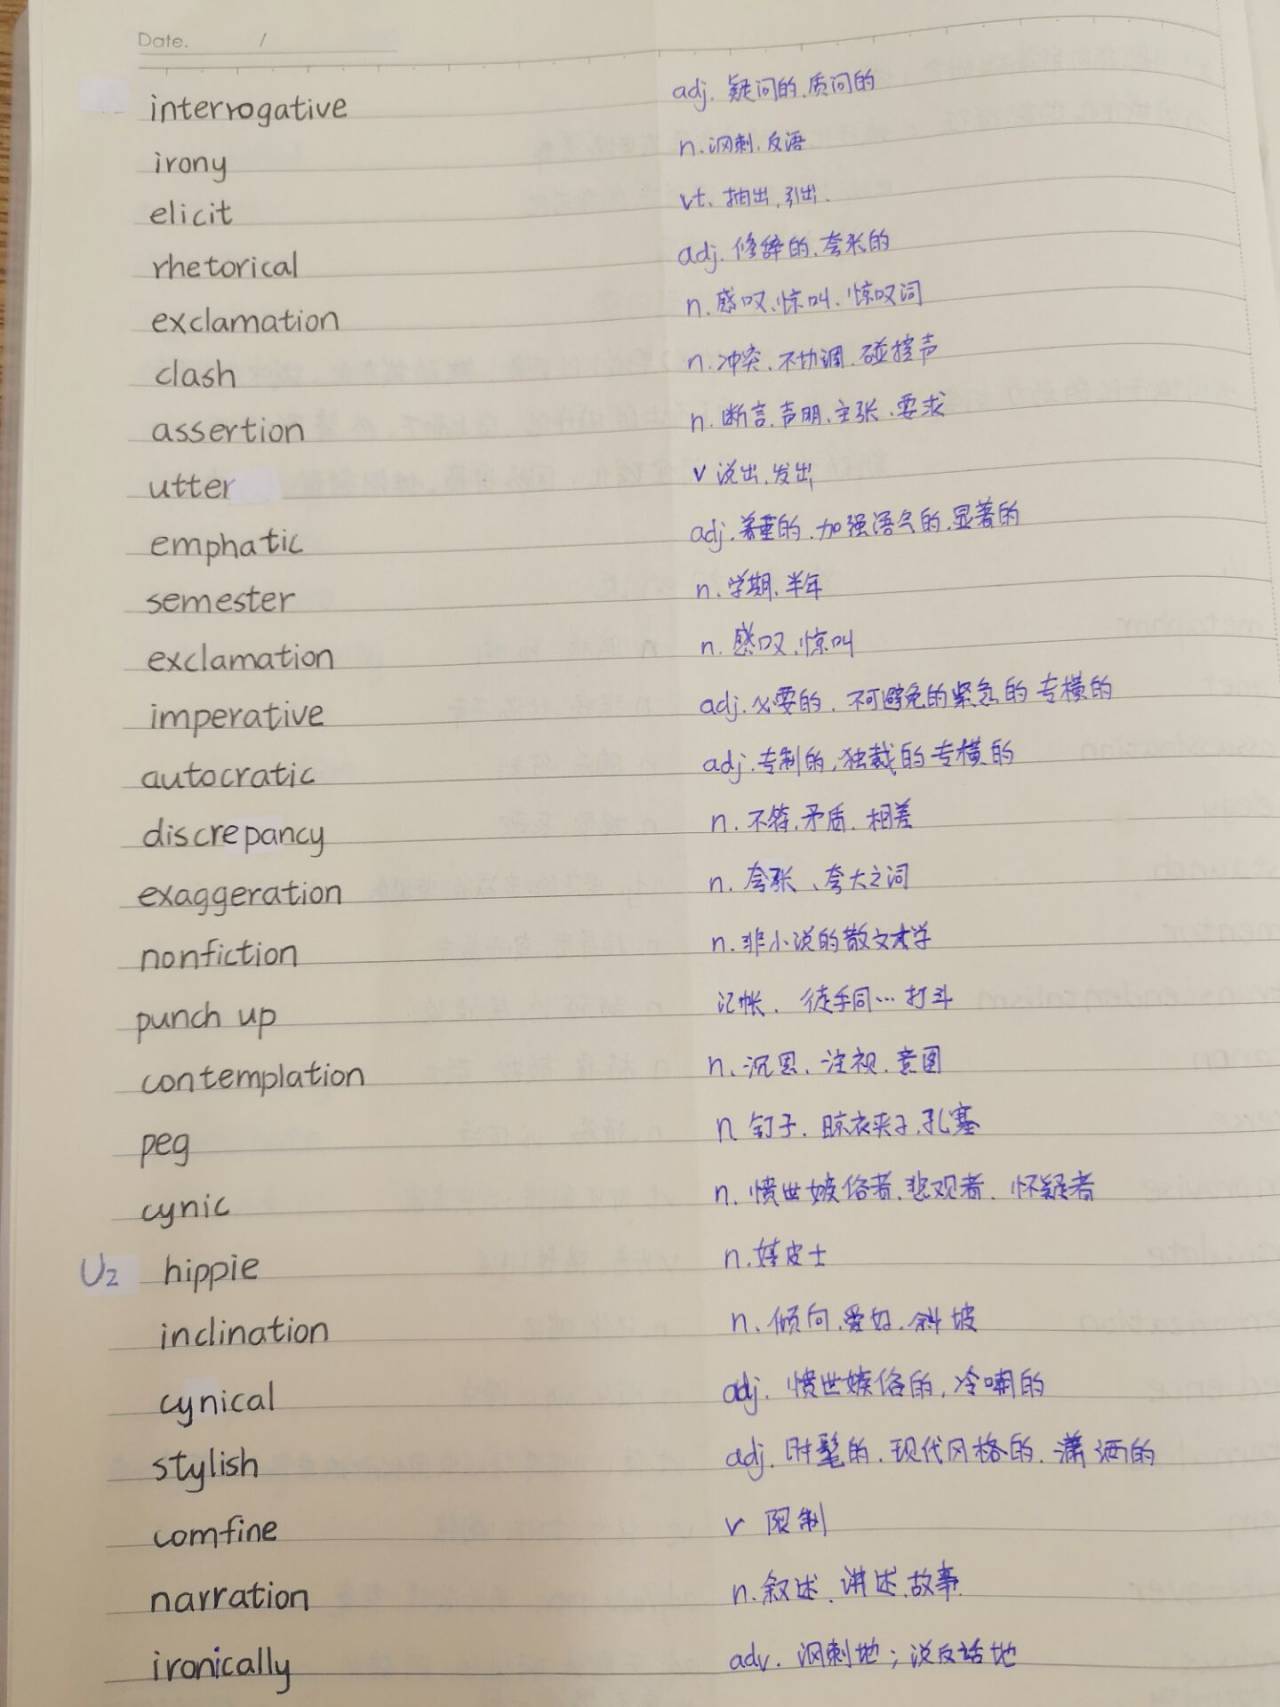 Date. /
interrogative adj. 疑问的.质问的
irony n.讽刺.反语
elicit vt. 抽出.引出.
rhetorical adj. 修辞的.夸张的
exclamation n.感叹.惊叫.惊叹词
clash n.冲突.不协调.碰撞声
assertion n.断言.声明.主张.要求
utter v 说出.发出
emphatic adj.着重的.加强语气的.显著的
semester n.学期.半年
exclamation n.感叹.惊叫
imperative adj.必要的.不可避免的紧急的专横的
autocratic adj.专制的,独裁的专横的
discrepancy n.不符.矛盾.相差
exaggeration n.夸张、夸大之词
nonfiction n.非小说的散文文学
punch up 记帐. 徒手同…打斗
contemplation n.沉思.注视.意图
peg n 钉子.晾衣夹子.孔塞
cynic n.愤世嫉俗者.悲观者.怀疑者
U2 hippie n.嬉皮士
inclination n.倾向.爱好.斜坡
cynical adj. 愤世嫉俗的,冷嘲的
stylish adj.时髦的.现代风格的.潇洒的
comfine v 限制
narration n.叙述.讲述.故事.
ironically adv. 讽刺地；说反话地